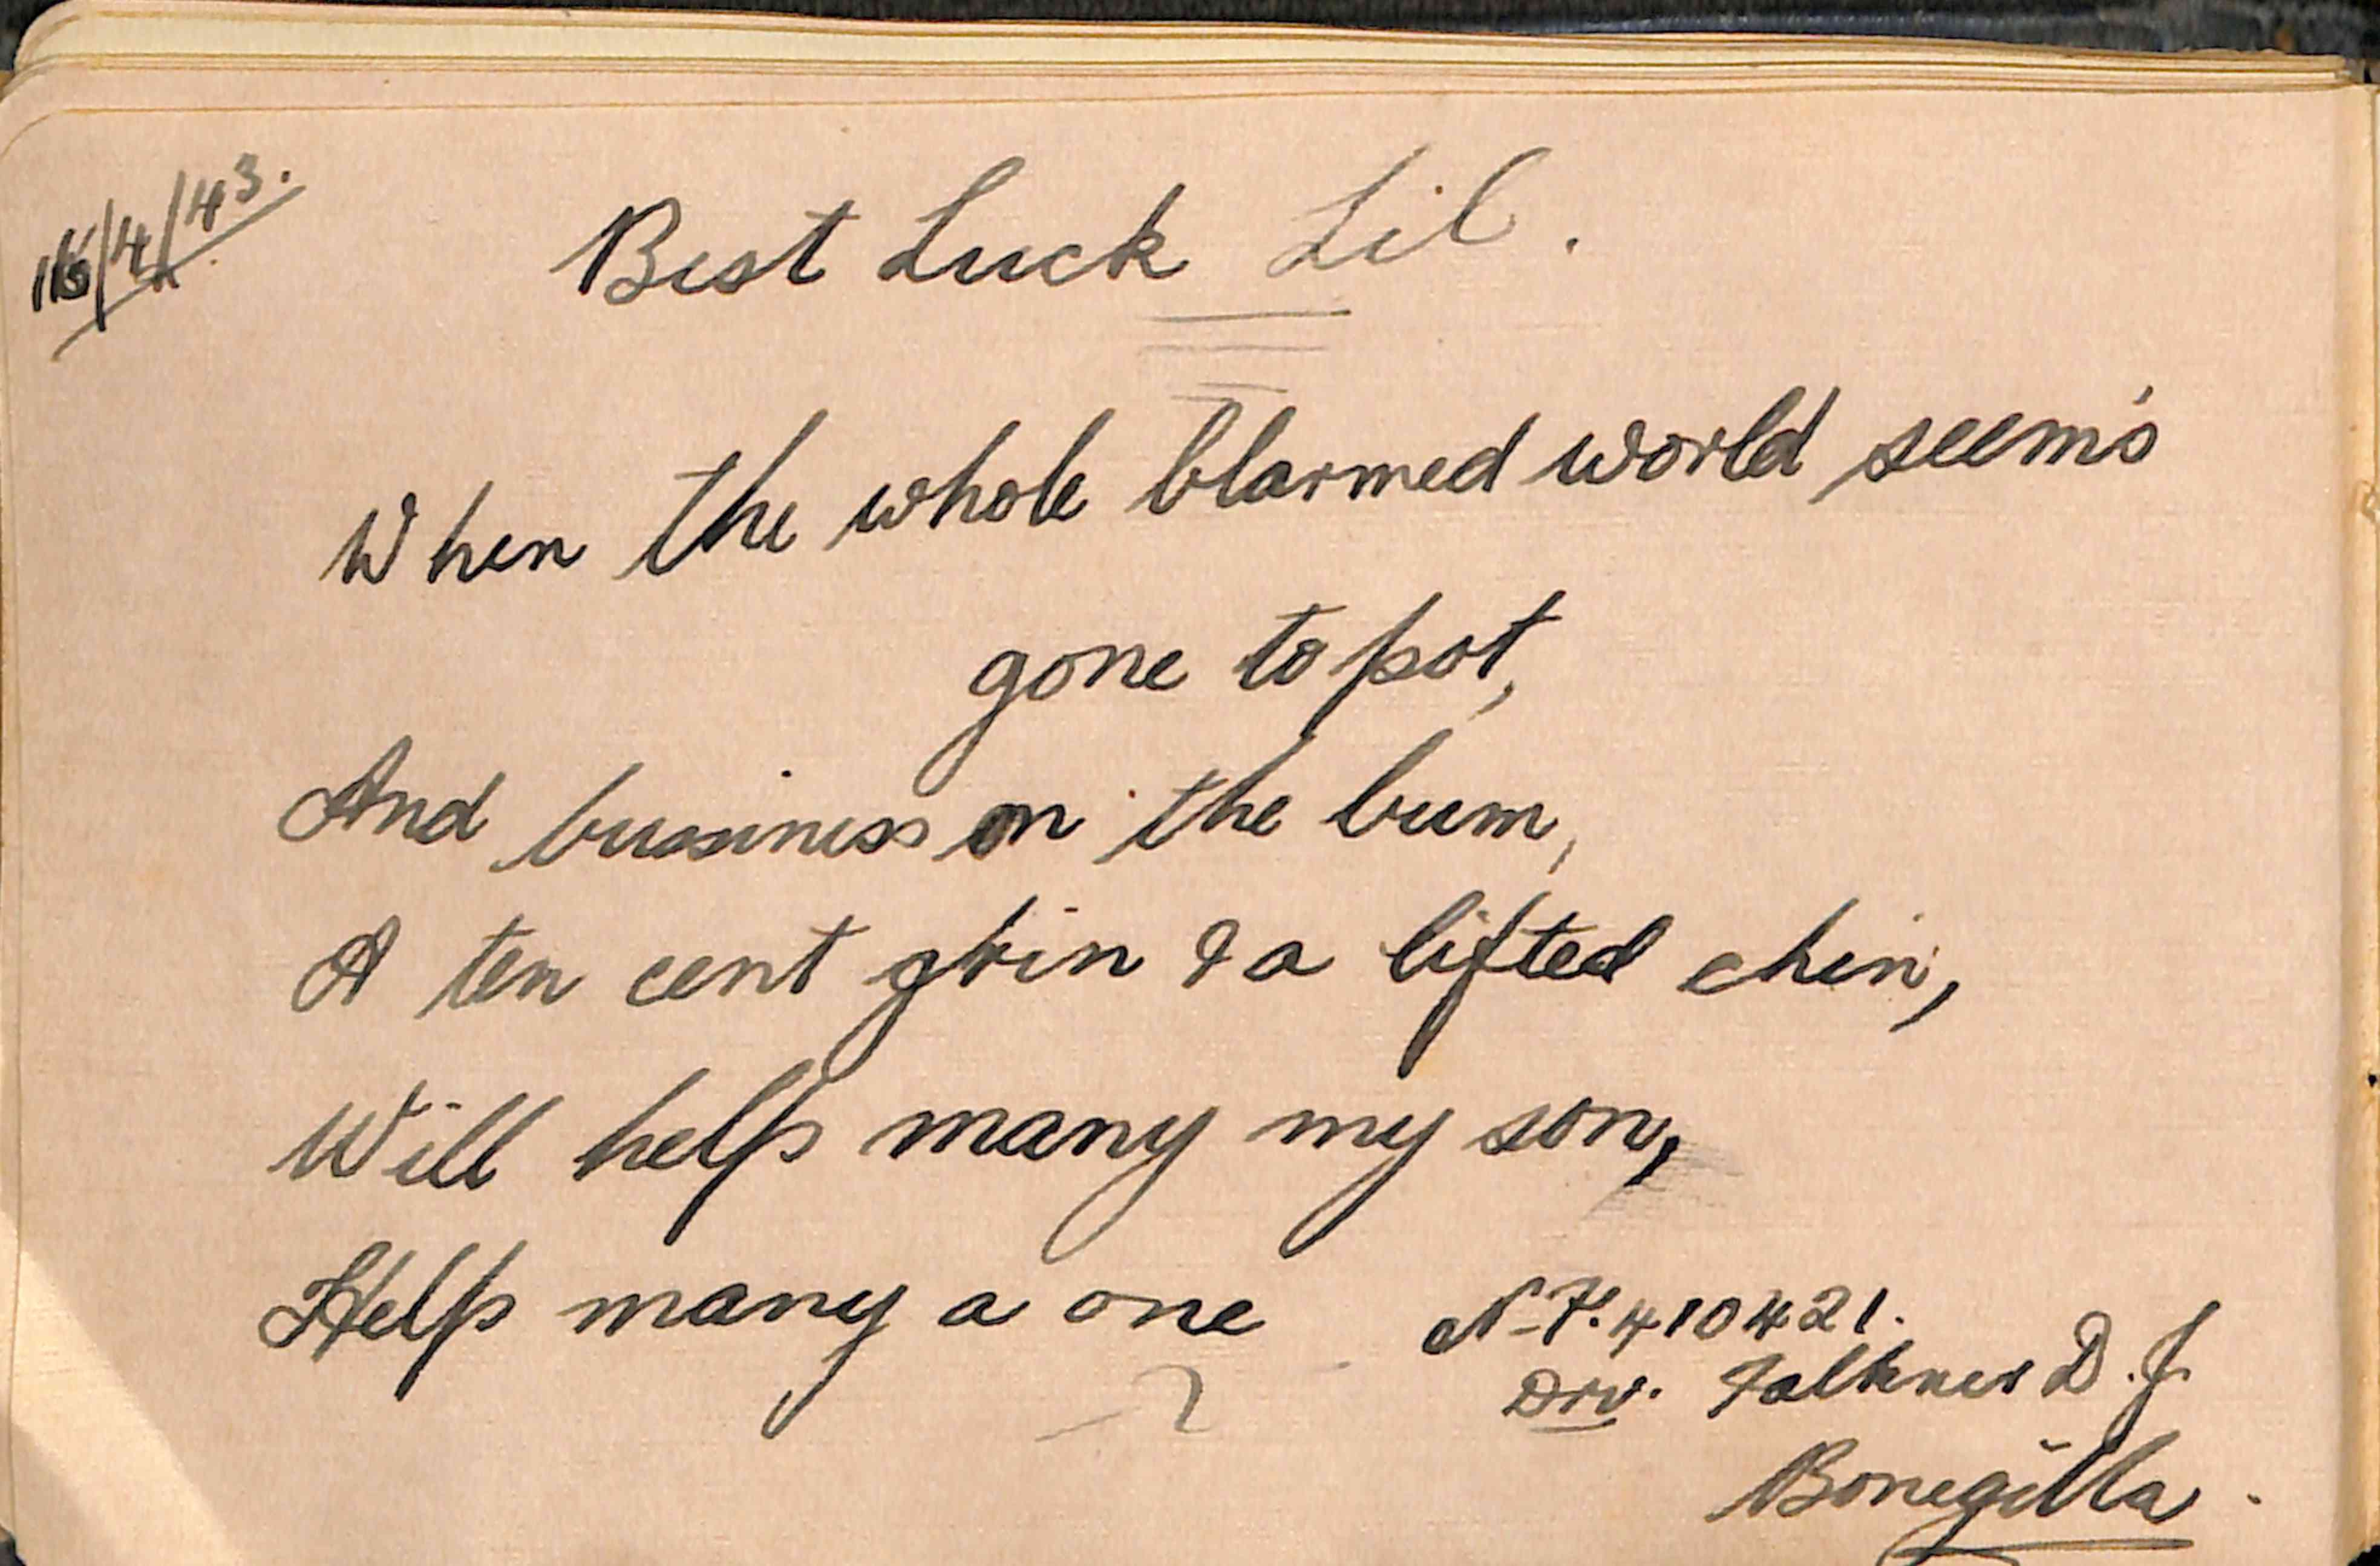 /4/43.
Best Luck Lil.
When the whole blarmed world seem's
gone to pot,
And bussiness on the bum,
A ten cent grin & a lifted chin,
Will help many my son,
Help many a one
410421.
Drv. Falkner D.J.
Bonegilla.